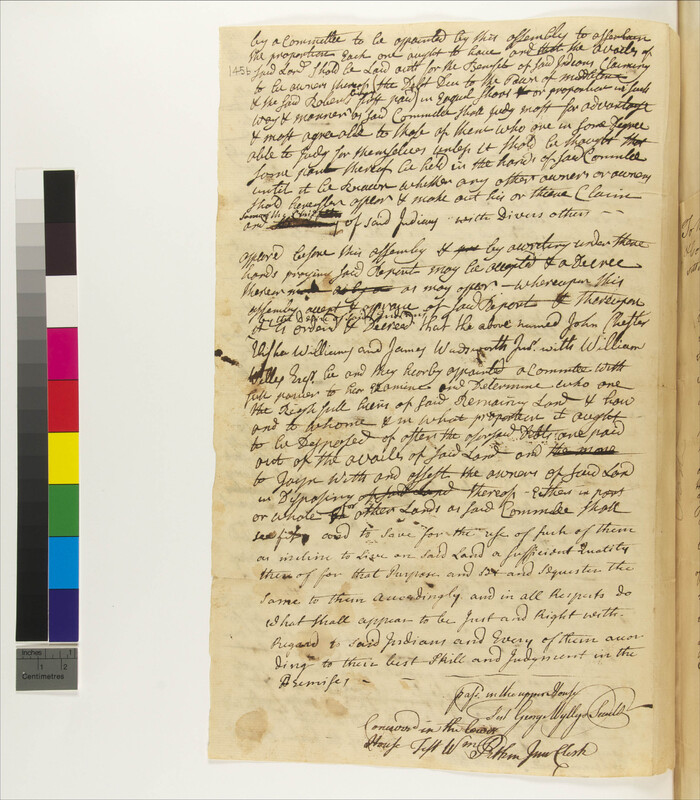 by a Committee to be appointed by this assembly to assertain
the proportion Each one ought to have and that the availes of
145b
said Land Shold be Laid out for the Benefit of said Indians Claiming
to be owners thereof (the Debt Due to the
& the said Roberts first paid) in Equal Shars or proportion in such
way & manner as said Committee shall judg most for advantage
& most agreable to those of them who are in some Degree
able to Judg for themselves unless it shold be thought that
some part thereof be held in the hands of said Commitee
until it be Known whether any other owners or owners
shold hereafter appear & make out his or theire Claim
and of said Indians with Divers others
appeard before this assembly & by a writing under there
hands praying said Report may be accepted & a Decree
thereon as may apear whereupon this
assembly accept & approve of said Report & Thereupon
it is orderd & Decreed that the above named John Chester
Elisha Williams and James Wadsworth Junr. with William
Willes Esqr. be and they hereby appointed a Commitee with
full power to hear Examine and Determine who are
the Rightfull heirs of said Remaining Land & how
and to whome & in what proportion it ought
to be Disposed of after the aforsaid Debts are paid
out of the availes of said Land and the more
to Joyn with and assist the owners of said Land
in Disposing of said Land thereof Either in part
or whole for other Lands as said Commitee shall
see fit and to Save for the use of such of them
as incline to Live on said Land a sufficient Quality
thereof for that Purpose and Set and Sequester the
Same to them accordingly and in all Respects do
what shall appear to be Just and Right with
Regard to said Indians and Every of them accor-
ding to their best Skill and Judgment in the
Premises
Past in the upper House
Test George Wyllys Secret
Concurrd in the lower
House Test Wm Pitkin Junr Clerk
Inches
1
2
Centimetres